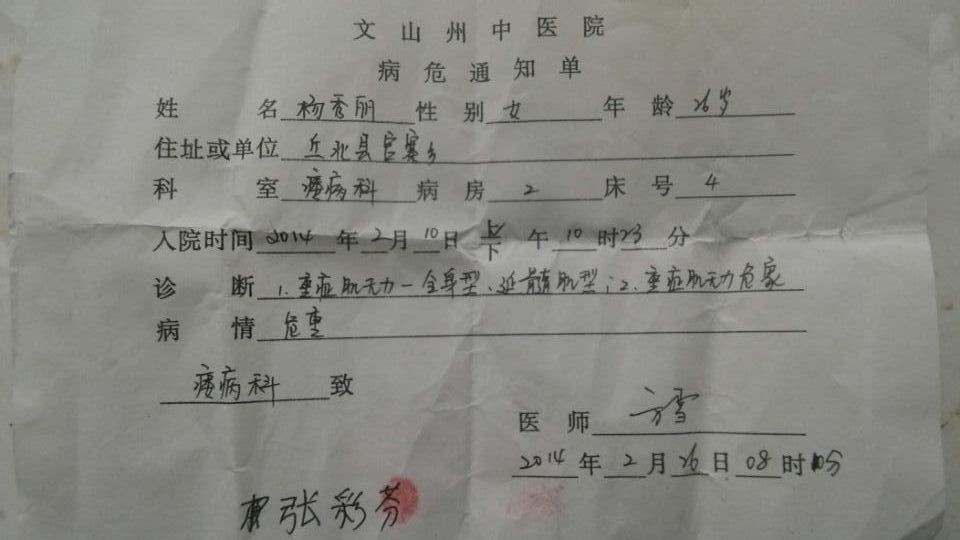 文山州中医院
病危通知单
姓名 杨秀丽 性别 女 年龄 26岁
住址或单位 丘北县官寨乡
科室 痿病科 病房 2 床号 4
入院时间 2014年2月10日 上/下午10时23分
诊断 1.重症肌无力-全身型、延髓肌型;2.重症肌无力危象
病情 危重
痿病科 致
医师 方雪
2014年2月26日08时10分
张彩芬